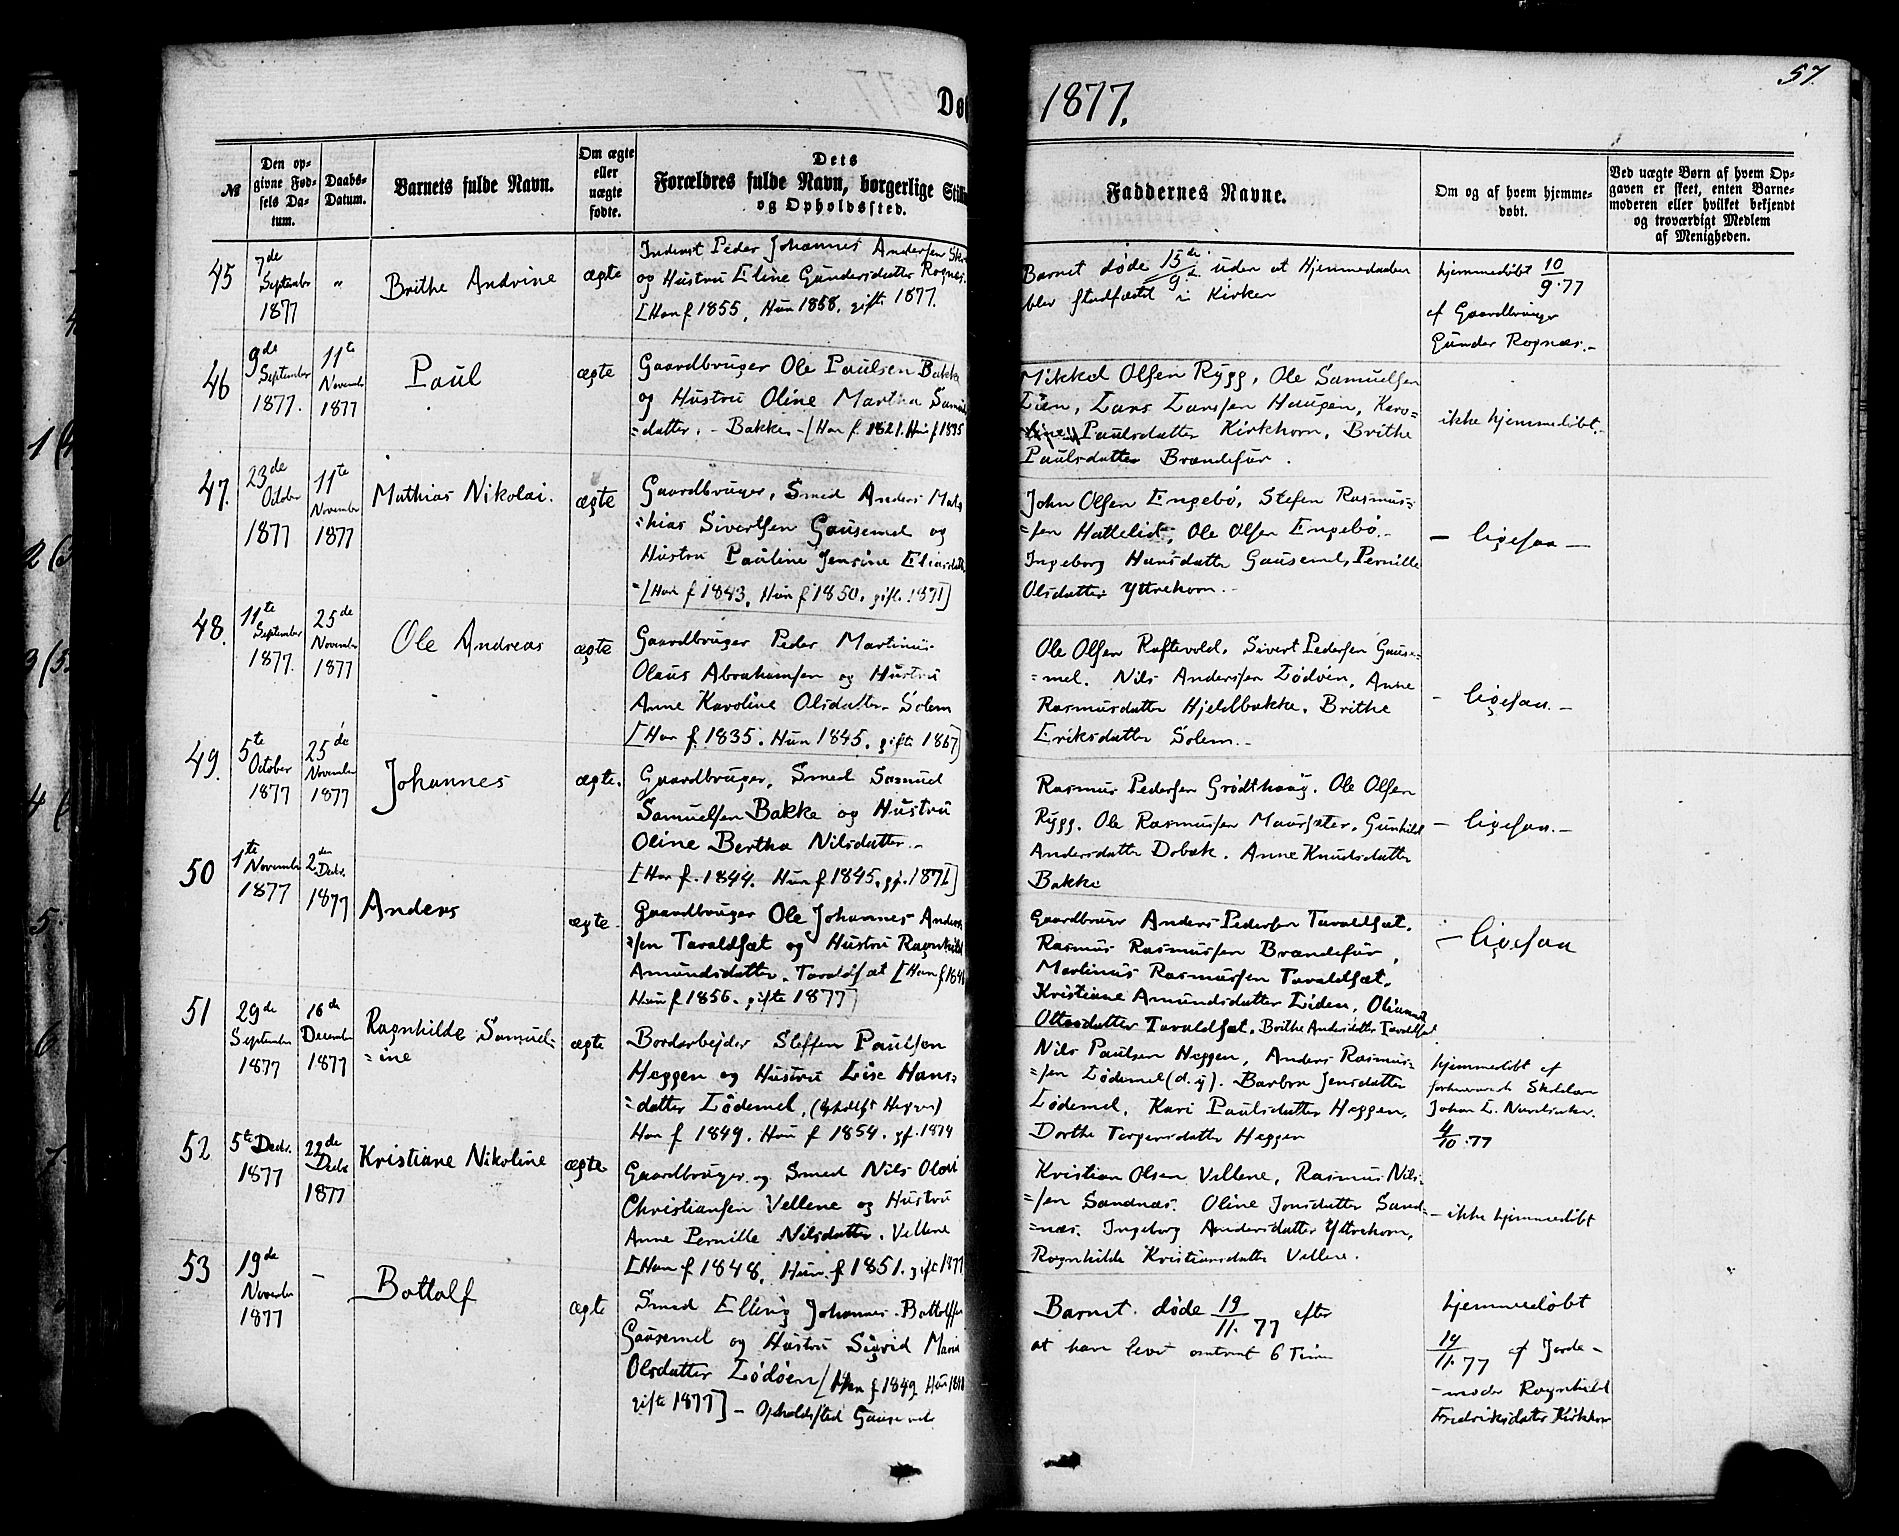 57.
Dø
1877.
№
Den op-
givne Fød-
sels Da-
tum.
Daabs-
Datum.
Barnets fulde Navn.
Om ægte
eller
uægte
fødte.
Dets
Forældres fulde Navn, borgerlige Still
og Opholdssted.
Faddernes Navne.
Om og af hvem hjemme-
døbt.
Ved uægte Børn af hvem Op-
gaven er skeet, enten Barne-
moderen eller hvilket bekjendt
og troværdigt Medlem
af Menigheden.
45
7de
September
1877
"
Brithe Andrine
ægte
Inderst Peder Johannes Andersen
og Hustru Eline Gundersdatter Rognæs.
[Han f 1855, Hun 1858. gift 1877.
Barnet døde 15de/9 uden at Hjemmedaaben
blev stadfæstet i Kirken
hjemmedøbt 10/9.77
af Gaardbruger
Gunder Rognæs.-
46
9de
September
1877.
11te
Novembr
1877
Paul
ægte
Gaardbruger Ole Paulsen Bakke
og Hustru Oline Martha Samuels
=datter. - Bakke - [Han f. 1821. Hun f 1835
Mikkel Olsen Rygg, Ole Samuelsen
Lien, Lars Larssen Haugen, Karo=
line Paulsdatter Kirkhorn, Brithe
Paulsdatter Brændefur.
ikke hjemmedøbt.-
47.
23de
October
1877
11te
November
1877
Mathias Nikolai.
ægte
Gaardbruger, Smed Anders Mat
=hias Sivertsen Gausemel og
Hustru Pauline Jensine Eliasdatt
=[Han f 1843, Hun f 1850. gift. 1871]
John Olsen Engebø, Stefen Rasmus=
=sen Hattelid, Ole Olsen Engebø.-
Ingeborg Hansdatter Gausemel, Pernille
Olsdatter Yttrehorn.-
- ligesaa -
48.
11te
September
1877.
25de
November
1877
Ole Andreas
ægte
Gaardbruger Peder Martinus
Olaus Abrahamsen og Hustru
Anne Karoline Olsdatter Solem
[Han f. 1835. Hun 1845. gifte 1867]
Ole Olsen Raftevold, Sivert Pedersen Gause=
=mel. Nils Anderssen Lødøen, Anne
Rasmusdatter Hjeldbakke, Brithe
Eriksdatter Solem.-
- ligesaa. -
49.
5te
October
1877
25de
November
1877
Johannes
ægte.
Gaardbruger, Smed Samuel
Samuelsen Bakke og Hustru
Oline Bertha Nilsdatter.-
[Han f. 1844. Hun f 1845. gf. 1871]
Rasmus Pedersen Grødthaug. Ole Olsen
Rygg. Ole Rasmussen Maursæter. Gunhild
Andersdatter Dobak. Anne Knudsdatter
Bakke
- ligesaa. -
50
1te
November
1877
2den
Decbr.
1877
Anders
ægte
Gaardbruger Ole Johannes Anders
=sen Tavaldsæt og Hustru Ragnhild
Amundsdatter. Tavaldsæt [Han f.
Hun f 1856. gifte 1877]
Gaardbruger Anders Pedersen Tavaldsæt.
Rasmus Rasmussen Brændefur,
Martinus Rasmussen Tavaldsæt.
Kristiane Amundsdatter Liden,
Ottesdatter Tavaldsæt. Brithe Andersdatter Tavaldsæt.
- ligesaa
51
29de
September
1877
16de
December
1877
Ragnhilde Samuel=
=ine
ægte
Bordarbejder Steffen Paulsen
Heggen og Hustru Lise Hans=
=datter Lødemel. (Opholdst Heggen)
Han f 1849. Hun f 1854. gf. 1874
Nils Paulsen Heggen, Anders Rasmus=
=sen Lødemel (d.y). Barbra Jensdatter
Lødemel, Kari Paulsdatter Heggen,
Dorthe Torgersdatter Heggen
hjemmedøbt af
Johan E.
4/10.77
52
5te Decbr.
1877
22de
Decbr
1877
Kristiane Nikoline
ægte
Gaardbruger og Smed Nils Olai
Christiansen Vellene og Hustru
Anne Pernille Nilsdatter. Vellene
[Han f 1848, Hun f 1851. gift 1877
Kristian Olsen Vellene, Rasmus Nils=
=sen Sandnæs. Oline Jonsdatter Sand=
=næs. Ingeborg Andersdatter Yttrehorn,
Ragnhilde Kristiansdatter Vellene.
- ikke hjemmedøbt
53
19de
Novembr
1877
-
Bottolf
ægte
Smed Elling Johannes Bottolfsen
Gausemel og Hustru Sigrid Marie
Olsdatter Lødøen [Han f 1849 Hun
gifte 1877] - Opholdssted Gausemel
Barnet døde 19/11.77 efter
at have levet omtrent 6 Timer
hjemmedøbt
19/11.77 af Jorde-
-moder Ragnhild
Fredriksdatter Kirkhorn